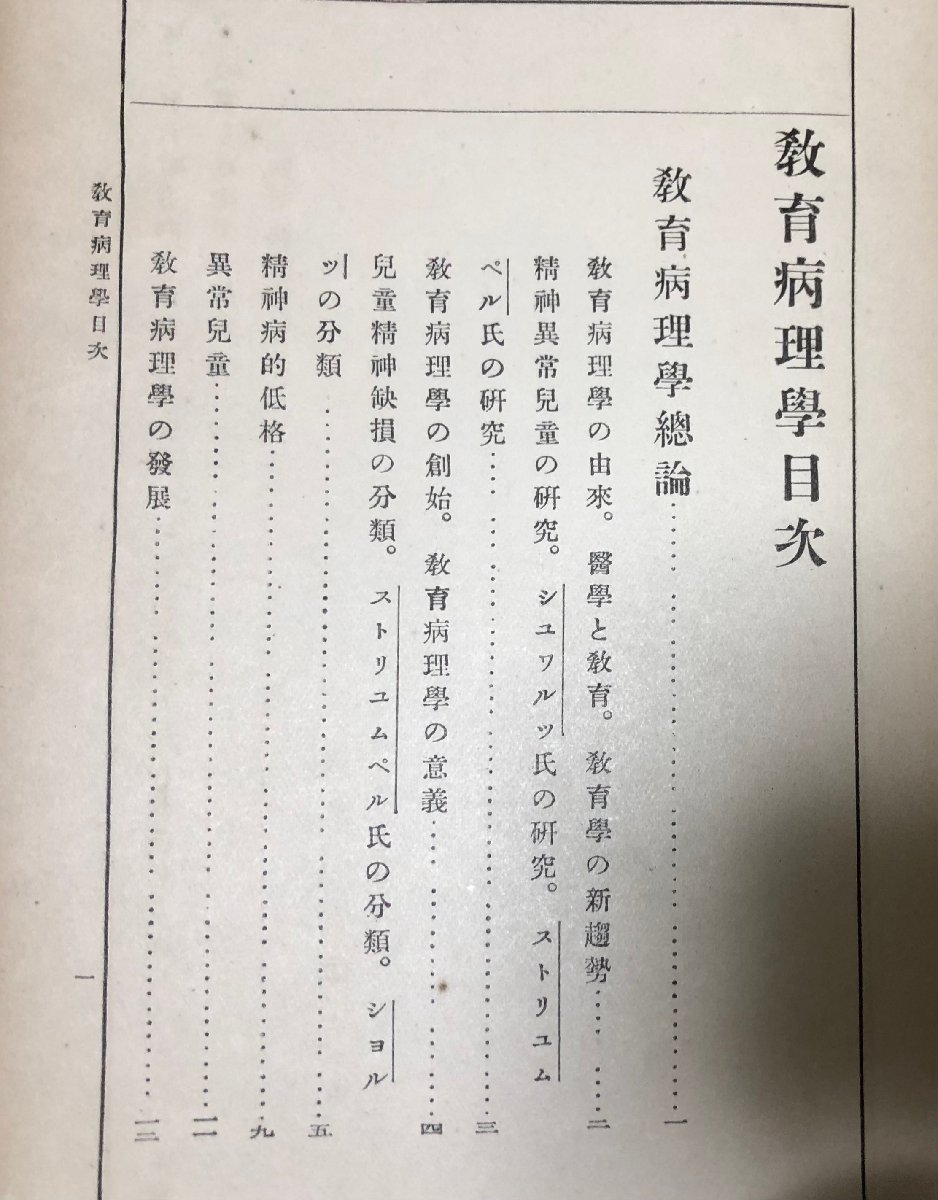 教育病理學目次
教育病理學總論……………………一
教育病理學の由來。醫學と教育。教育學の新趨勢……二
精神異常兒童の硏究。シユワルツ氏の硏究。ストリユム
ペル氏の硏究……………………三
教育病理學の創始。教育病理學の意義……………四
兒童精神缺損の分類。ストリユムペル氏の分類。シヨル
ツの分類……………………五
精神病的低格……………………九
異常兒童……………………一一
教育病理學の發展……………………一三
教育病理學目次
一